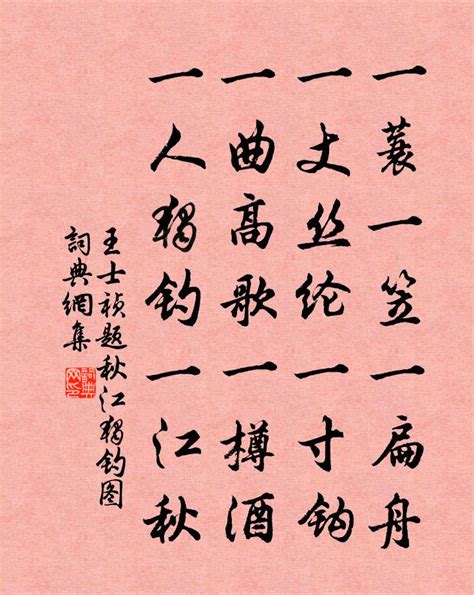 一蓑一笠一扁舟
一丈丝纶一寸钩
一曲高歌一樽酒
一人独钓一江秋
王士祯题秋江独钓图
詞典網集